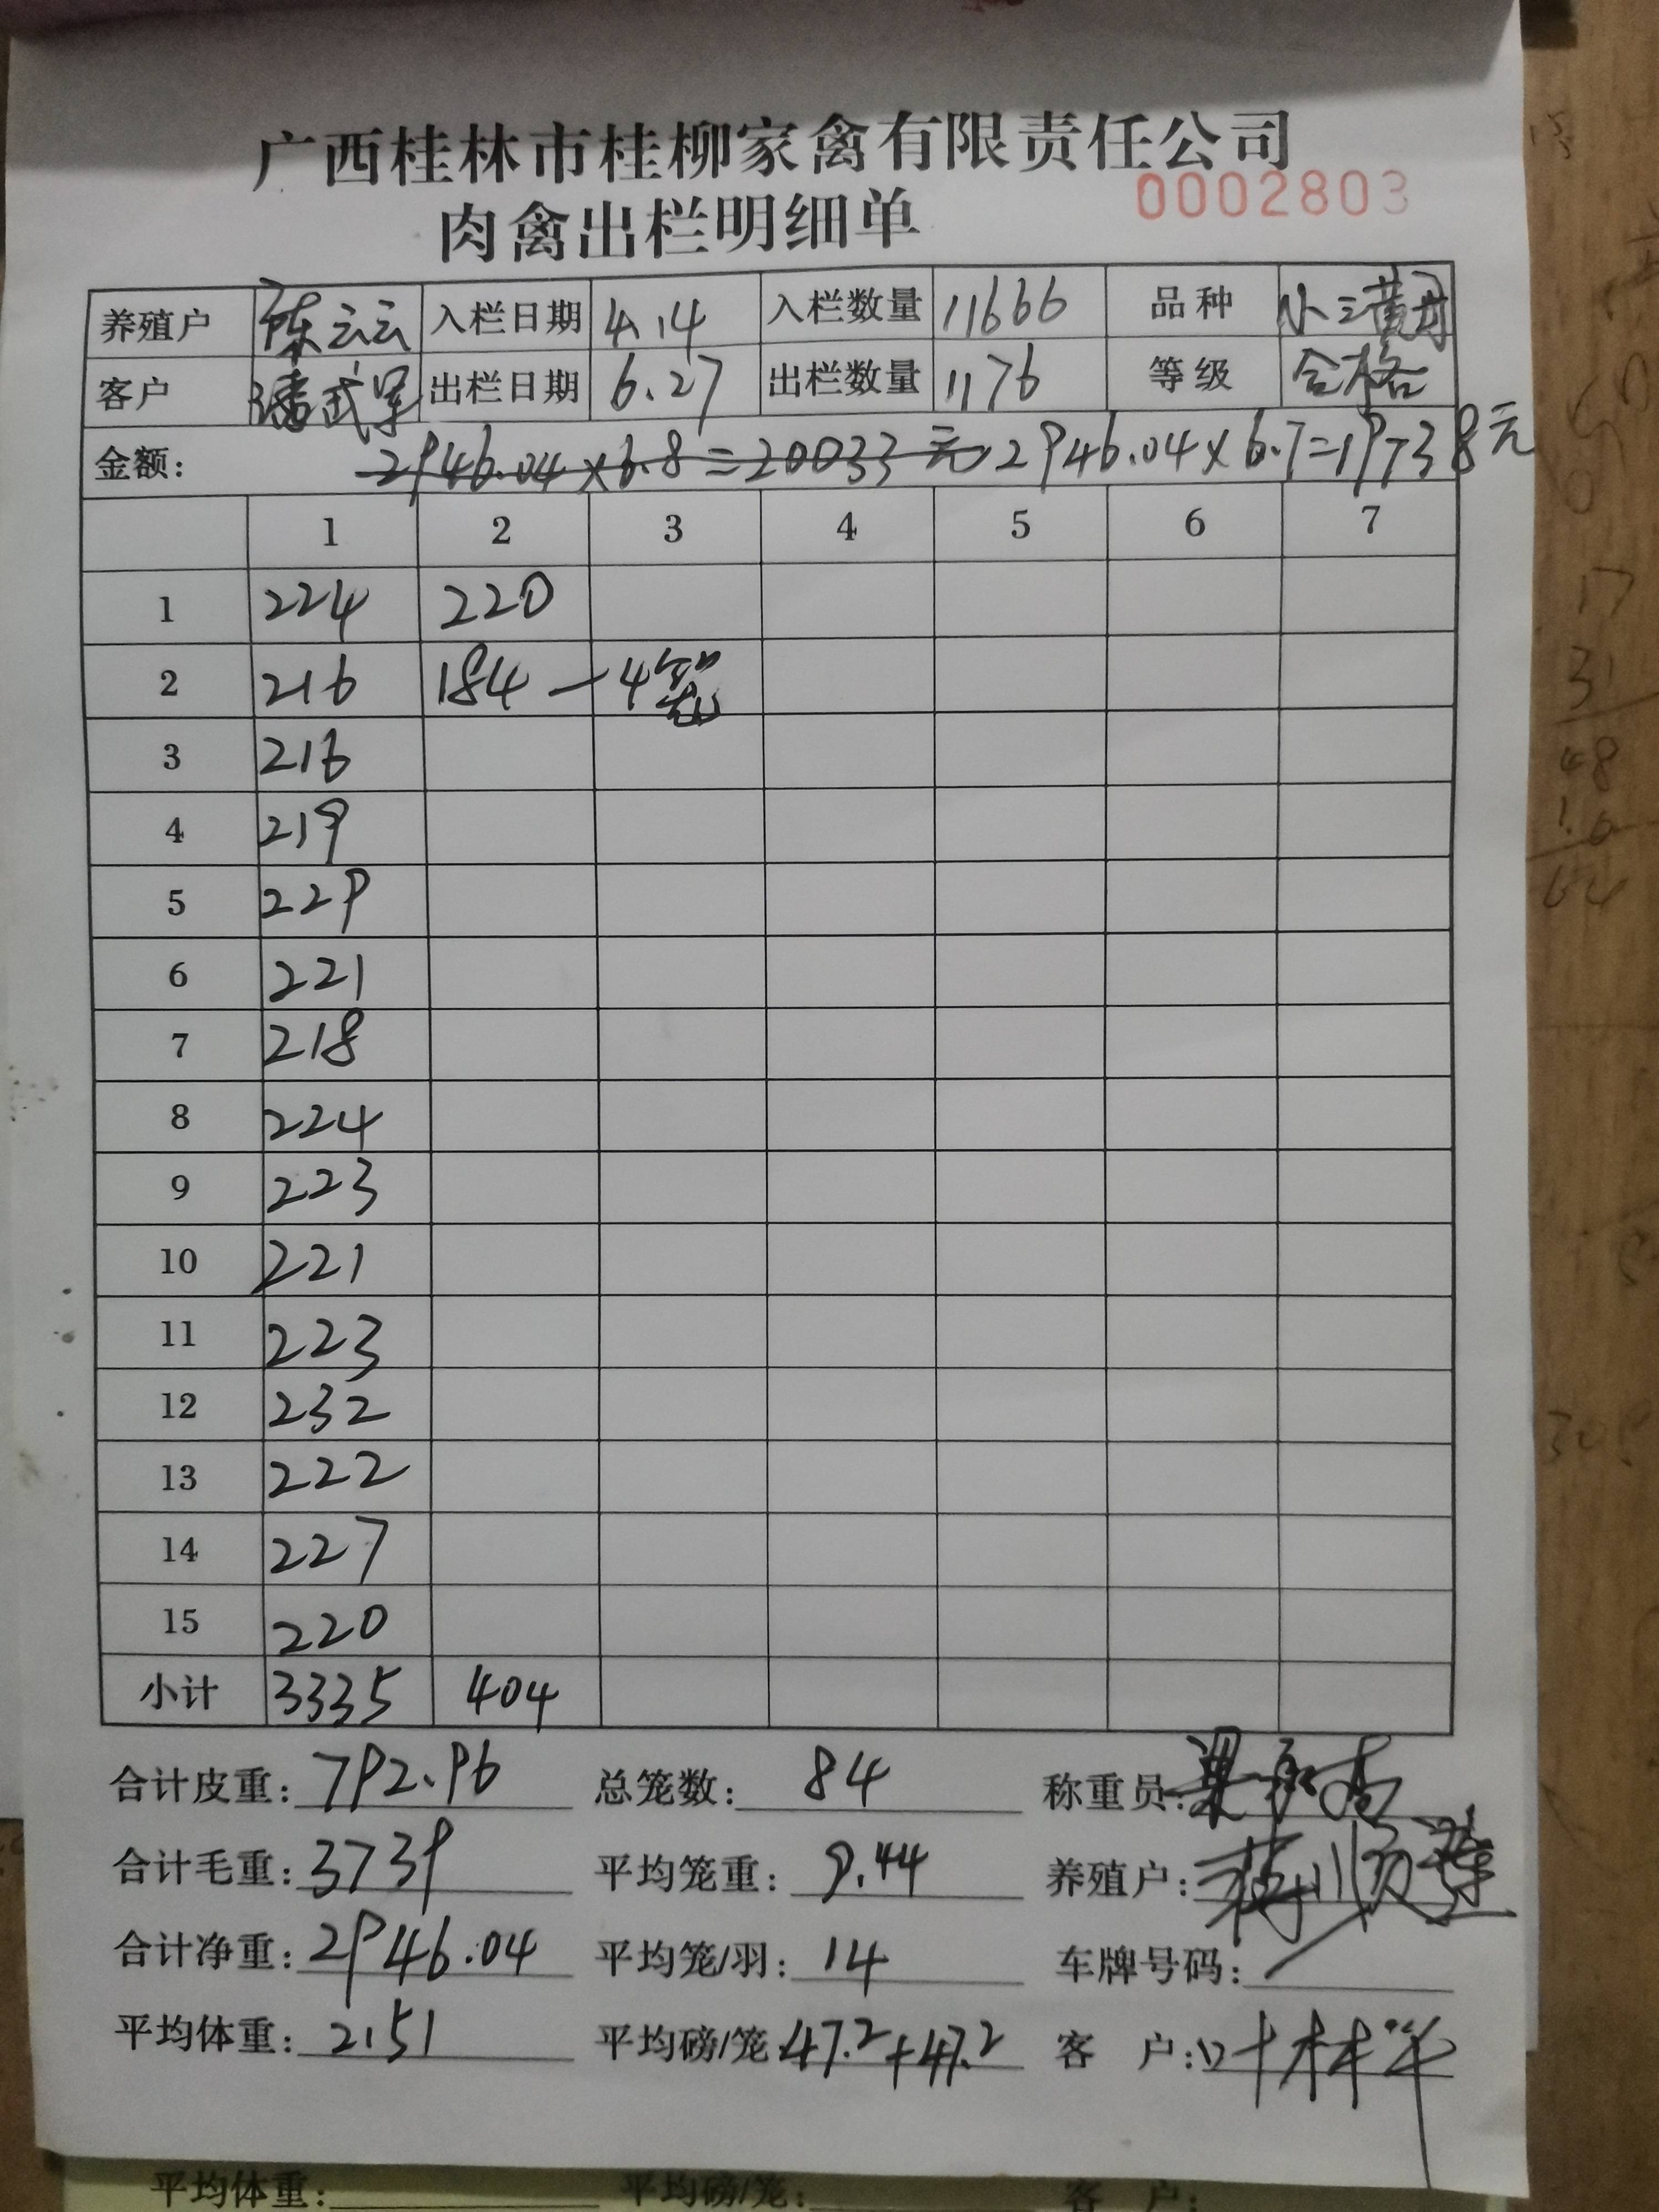 广西桂林市桂柳家禽有限责任公司
0002803
肉禽出栏明细单
养殖户 陈云云 入栏日期 4.14 入栏数量 11666 品种 小三黄母
客户 潘武军 出栏日期 6.27 出栏数量 1176 等级 合格
金额: 2946.04×6.8=20033元 2946.04×6.7=19738元
1 2 3 4 5 6 7
1 224 220
2 216 184 — 4笼
3 216
4 219
5 229
6 221
7 218
8 224
9 223
10 221
11 223
12 232
13 222
14 227
15 220
小计 3335 404
合计皮重: 792.96 总笼数: 84 称重员:
合计毛重: 3739 平均笼重: 9.44 养殖户:
合计净重: 2946.04 平均笼/羽: 14 车牌号码: /
平均体重: 2.51 平均磅/笼 47.2+47.2 客户: 叶林洋
平均体重: 平均磅/笼: 客户:
17
31
48
16
64